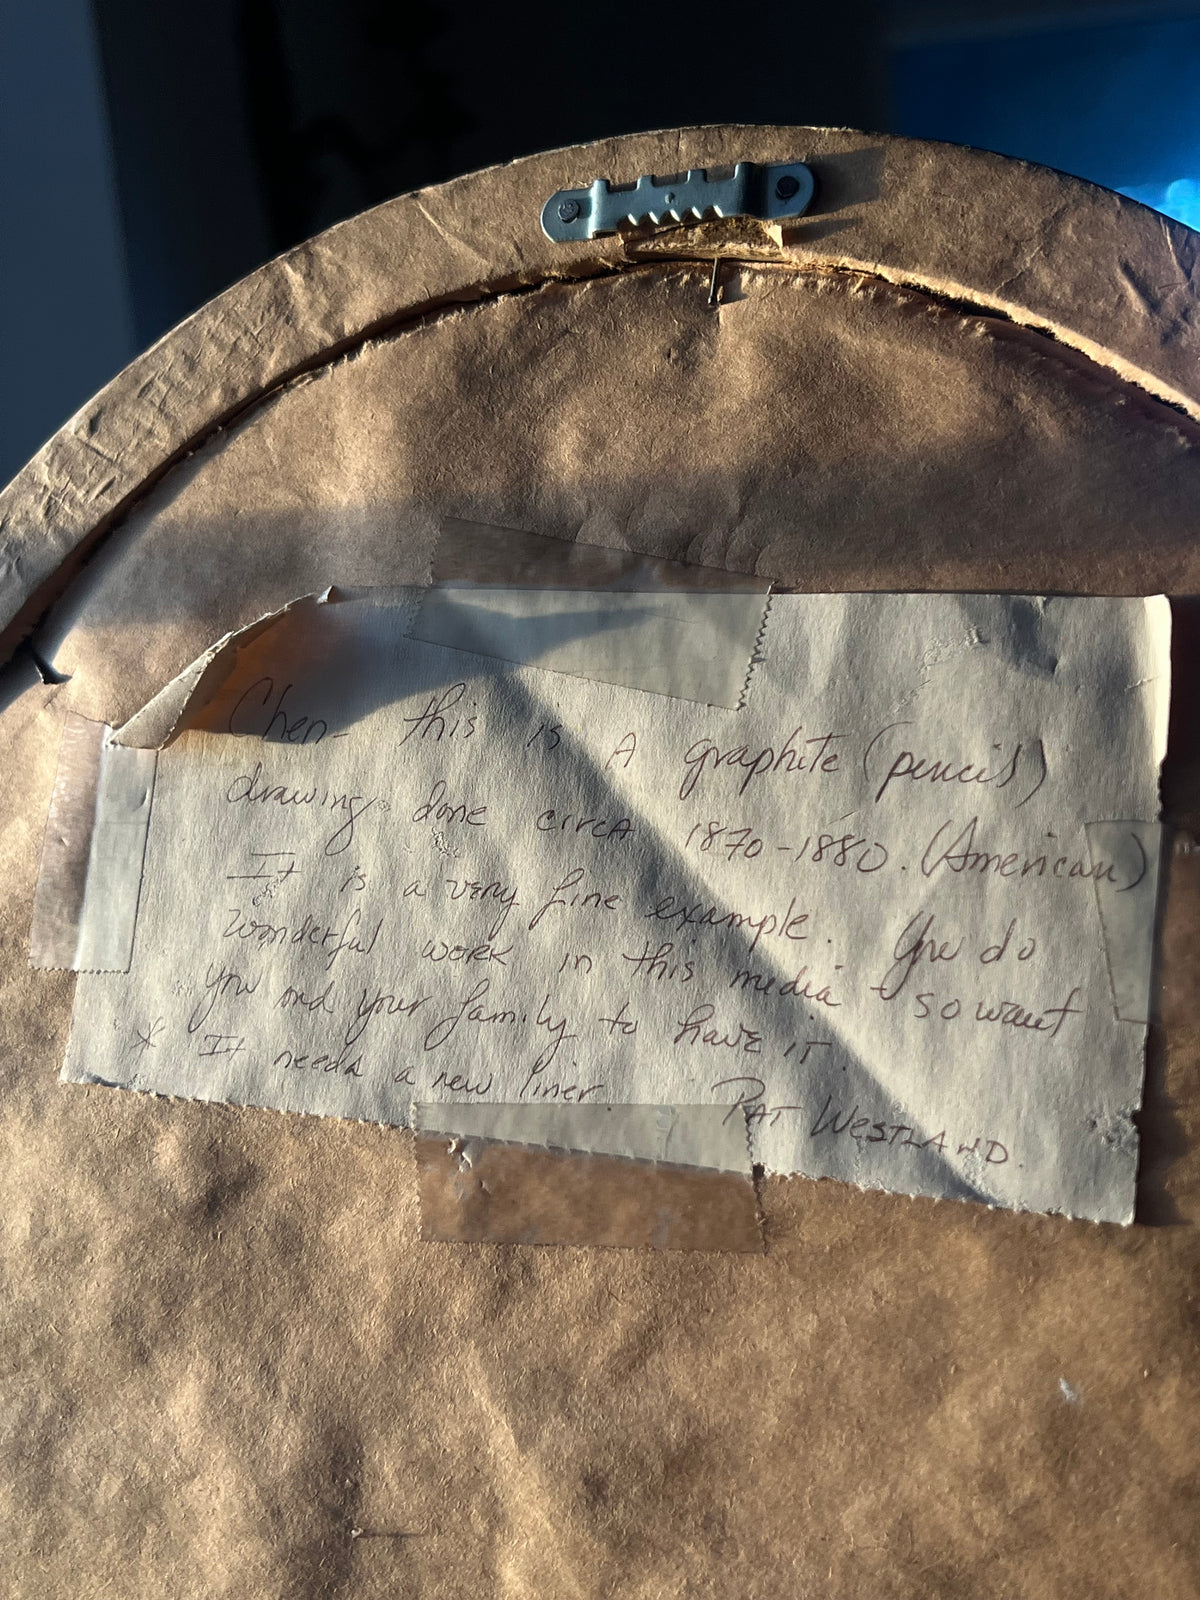 Chen - this is A graphite (pencil)
drawing done circA 1870-1880. (American)
It is a very fine example. You do
wonderful work in this media - so want
you and your family to have it.
* It needs a new liner
PAT WESTLAND.